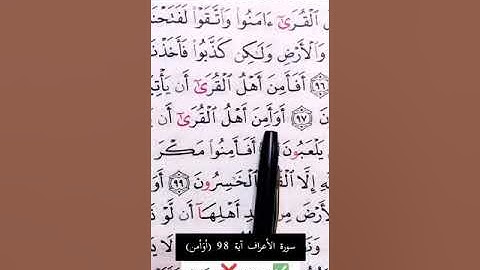 ـلَ ٱلۡقُرَىٰٓ ءَامَنُوا۟ وَٱتَّقَوۡا۟ لَفَتَحۡنَا
وَٱلۡأَرۡضِ وَلَـٰكِن كَذَّبُوا۟ فَأَخَذۡنَـ
٩٦ أَفَأَمِنَ أَهۡلُ ٱلۡقُرَىٰٓ أَن يَأۡتِيَـ
نَ ٩٧ أَوَأَمِنَ أَهۡلُ ٱلۡقُرَىٰٓ أَن يَـ
يَلۡعَبُونَ أَفَأَمِنُوا۟ مَكۡرَ
ـهِ إِلَّا ٱلۡقَـ ٱلۡخَـٰسِرُونَ ٩٩ أَوَ
ـأَرۡضَ مِنۢ ـدِ أَهۡلِهَآ أَن لَّوۡ نَـ
لَا يَـ
سورة الأعراف آية 98 (أوَأمن)